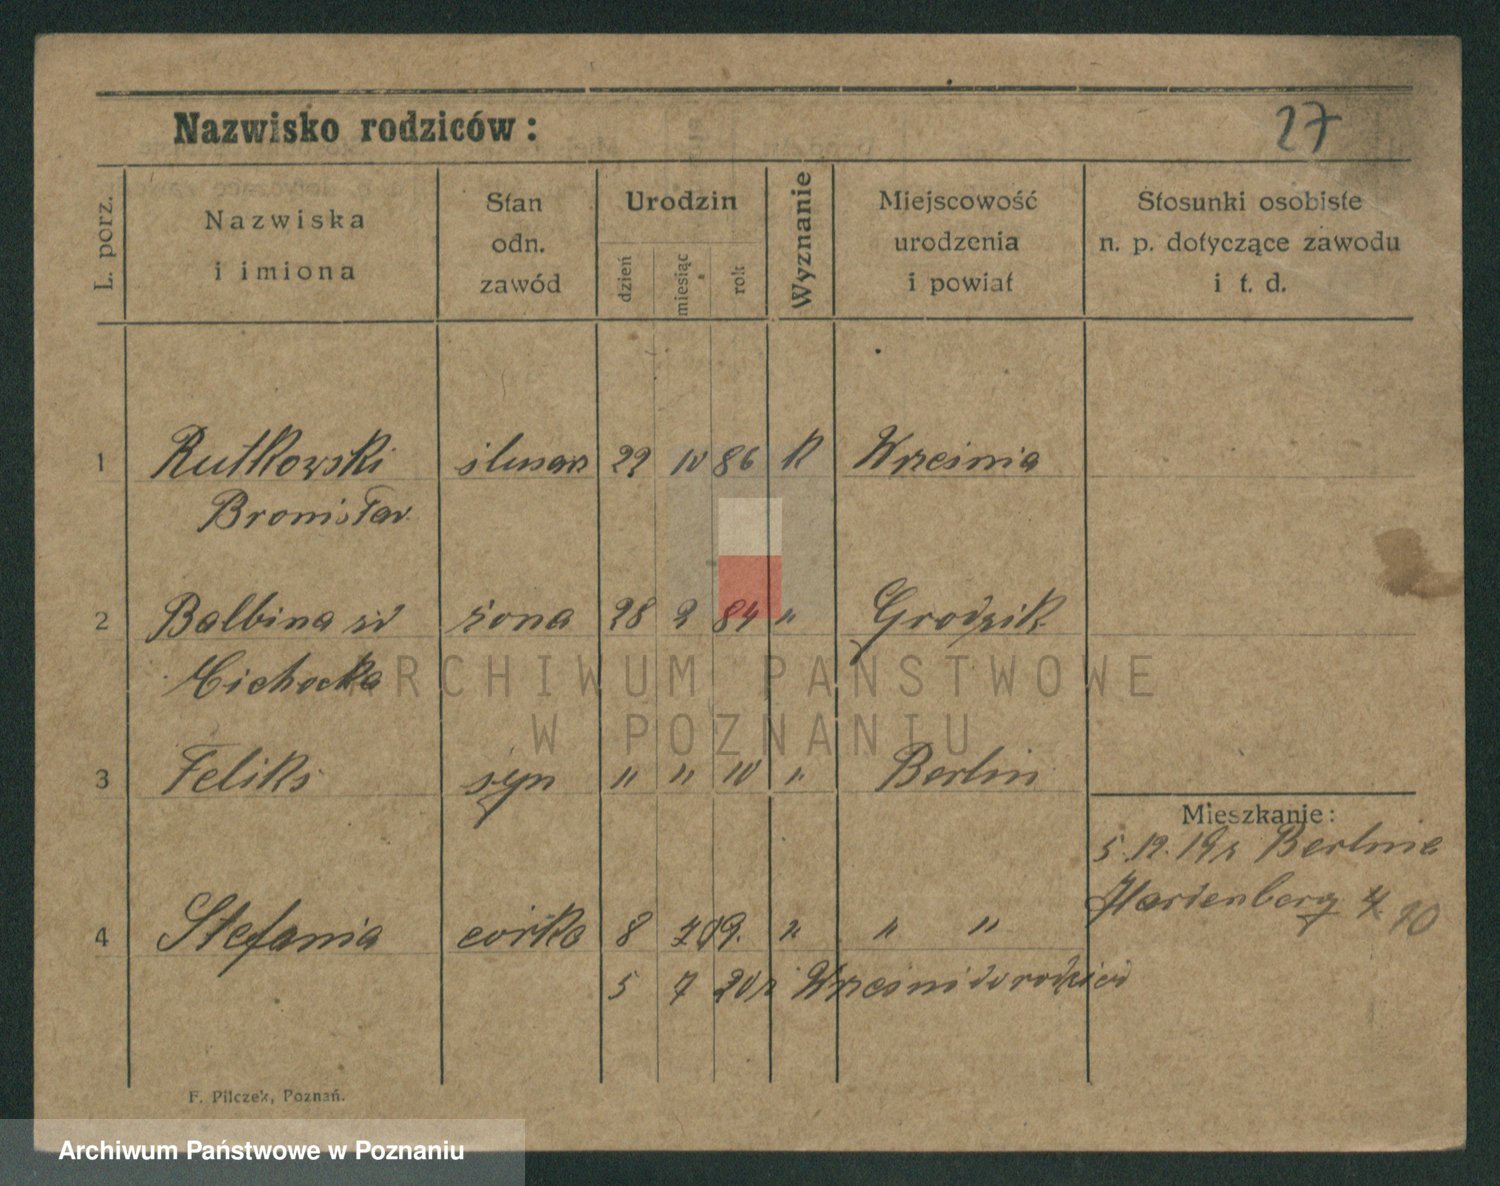 Nazwisko rodziców:
27
L. porz.
Nazwiska
i imiona
Stan
odn.
zawód
Urodzin
dzień
miesiąc
rok
Wyznanie
Miejscowość
urodzenia
i powiat
Stosunki osobiste
n. p. dotyczące zawodu
i t. d.
1 Rutkowski ślusarz 29 10 86 k Września
Bronisław
2 Balbina żona 28 2 84 " Grodzik
Cichocka
ARCHIWUM PAŃSTWOWE
W POZNANIU
3 Feliks syn " " 10 " Berlin
Mieszkanie:
5.12.19 z Berlina
Hardenberg 20
4 Stefania córka 8 7 09. " " "
5 7 20 z Wrześni do rodziców
F. Pilczek, Poznań.
Archiwum Państwowe w Poznaniu